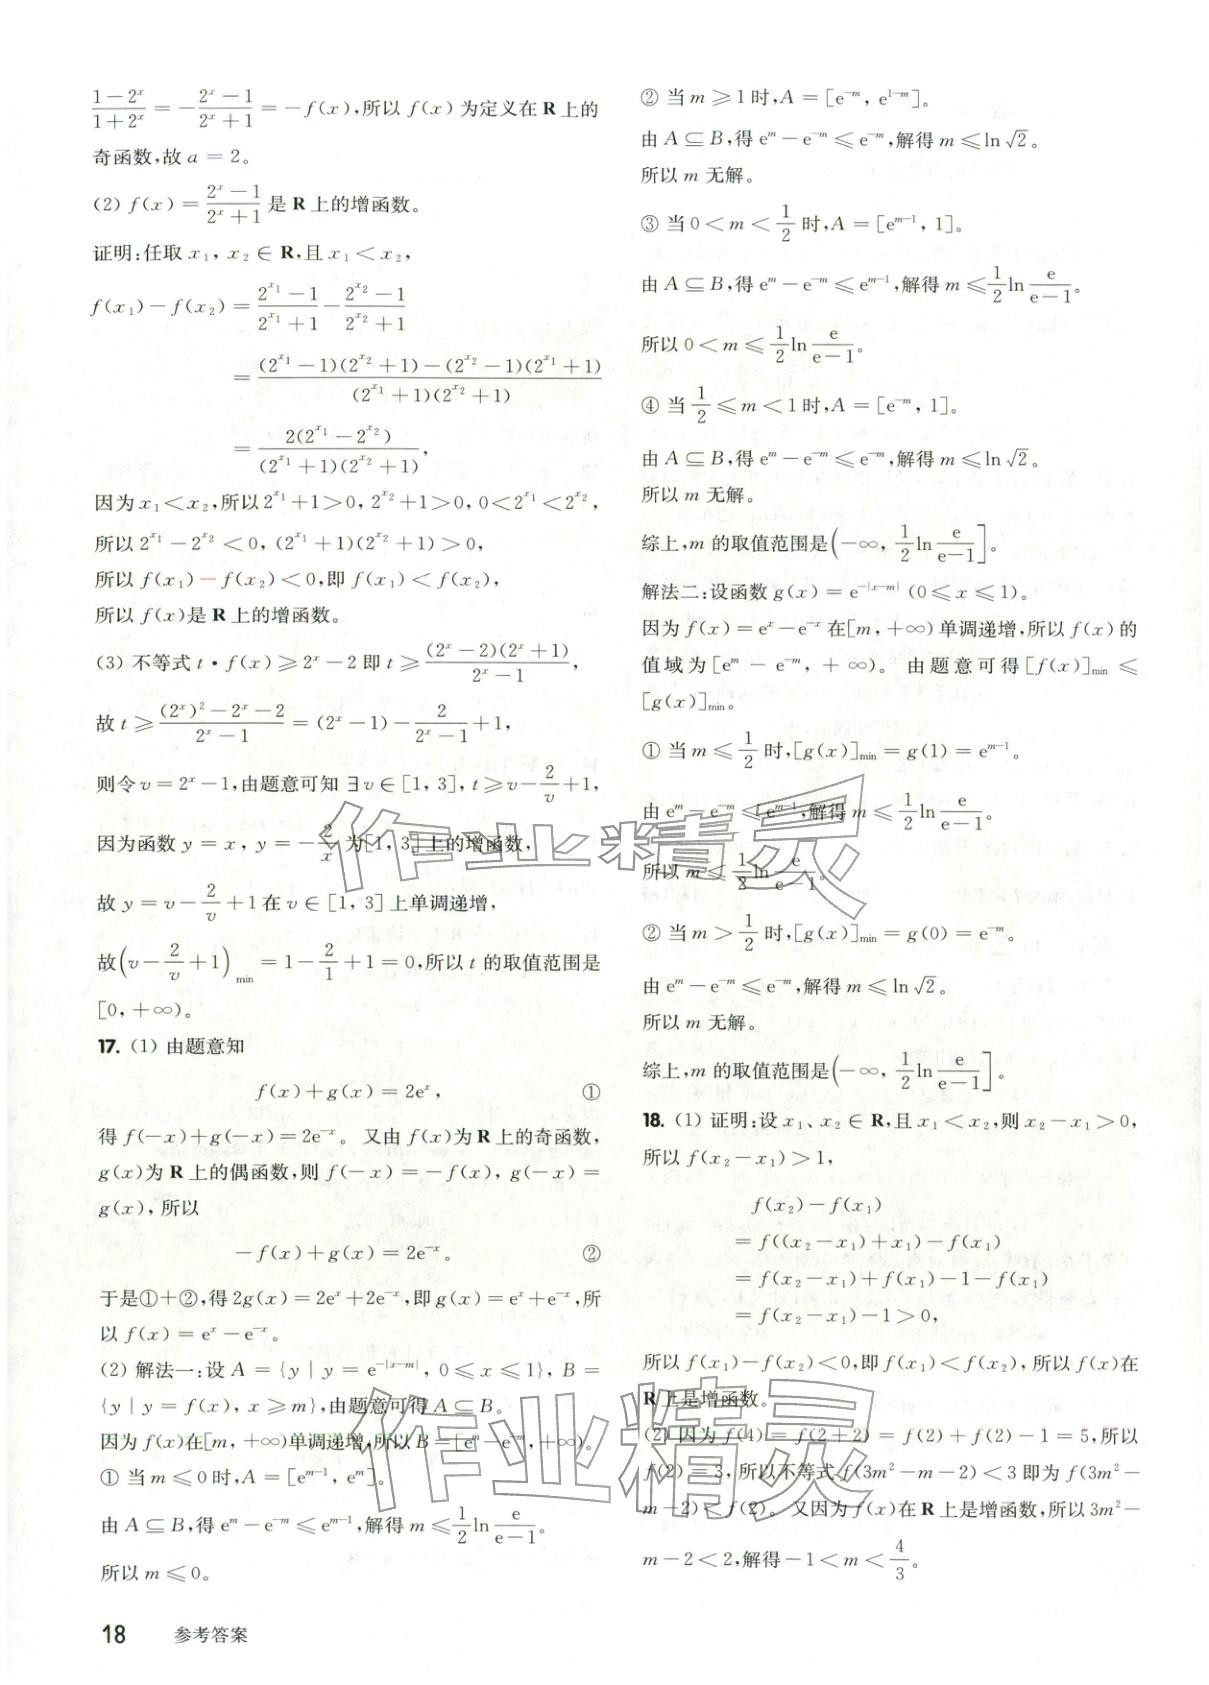 $\frac{1-2^x}{1+2^x}=-\frac{2^x-1}{2^x+1}=-f(x)$,所以 f(x) 为定义在 R 上的
奇函数,故 a=2。
(2) $f(x)=\frac{2^x-1}{2^x+1}$ 是 R 上的增函数。
证明:任取 $x_1, x_2\in$ R,且 $x_1<x_2$,
$f(x_1)-f(x_2)=\frac{2^{x_1}-1}{2^{x_1}+1}-\frac{2^{x_2}-1}{2^{x_2}+1}$
$=\frac{(2^{x_1}-1)(2^{x_2}+1)-(2^{x_2}-1)(2^{x_1}+1)}{(2^{x_1}+1)(2^{x_2}+1)}$
$=\frac{2(2^{x_1}-2^{x_2})}{(2^{x_1}+1)(2^{x_2}+1)}$,
因为 $x_1<x_2$,所以 $2^{x_1}+1>0, 2^{x_2}+1>0, 0<2^{x_1}<2^{x_2}$,
所以 $2^{x_1}-2^{x_2}<0, (2^{x_1}+1)(2^{x_2}+1)>0$,
所以 $f(x_1)-f(x_2)<0$,即 $f(x_1)<f(x_2)$,
所以 f(x)是 R 上的增函数。
(3) 不等式 $t\cdot f(x)\geqslant 2^x-2$ 即 $t\geqslant\frac{(2^x-2)(2^x+1)}{2^x-1}$,
故 $t\geqslant\frac{(2^x)^2-2^x-2}{2^x-1}=(2^x-1)-\frac{2}{2^x-1}+1$,
则令 $v=2^x-1$,由题意可知 $\exists v\in[1, 3], t\geqslant v-\frac{2}{v}+1$,
因为函数 $y=x, y=-\frac{2}{x}$ 为[1, 3]上的增函数,
故 $y=v-\frac{2}{v}+1$ 在 $v\in[1, 3]$ 上单调递增,
故$\left(v-\frac{2}{v}+1\right)_{min}=1-\frac{2}{1}+1=0$,所以 t 的取值范围是
[0, +∞)。
17. (1) 由题意知
$f(x)+g(x)=2e^x$, ①
得 $f(-x)+g(-x)=2e^{-x}$。 又由 f(x)为 R 上的奇函数,
g(x)为 R 上的偶函数,则 f(-x)=-f(x), g(-x)=
g(x),所以
$-f(x)+g(x)=2e^{-x}$。 ②
于是①+②,得 $2g(x)=2e^x+2e^{-x}$,即 $g(x)=e^x+e^{-x}$,所
以 $f(x)=e^x-e^{-x}$。
(2) 解法一:设 $A=\{y|y=e^{-|x-m|}, 0\leqslant x\leqslant 1\}, B=$
$\{y|y=f(x), x\geqslant m\}$,由题意可得 $A\subseteq B$。
因为 f(x)在[m, +∞)单调递增,所以 $B=[e^m-e^{-m}, +∞)$。
① 当 $m\leqslant 0$ 时,$A=[e^{m-1}, e^m]$。
由 $A\subseteq B$,得 $e^m-e^{-m}\leqslant e^{m-1}$,解得 $m\leqslant\frac{1}{2}\ln\frac{e}{e-1}$。
所以 $m\leqslant 0$。
② 当 $m\geqslant 1$ 时,$A=[e^{-m}, e^{1-m}]$。
由 $A\subseteq B$,得 $e^m-e^{-m}\leqslant e^{-m}$,解得 $m\leqslant\ln\sqrt{2}$。
所以 m 无解。
③ 当 $0<m<\frac{1}{2}$ 时,$A=[e^{m-1}, 1]$。
由 $A\subseteq B$,得 $e^m-e^{-m}\leqslant e^{m-1}$,解得 $m\leqslant\frac{1}{2}\ln\frac{e}{e-1}$。
所以 $0<m\leqslant\frac{1}{2}\ln\frac{e}{e-1}$。
④ 当 $\frac{1}{2}\leqslant m<1$ 时,$A=[e^{-m}, 1]$。
由 $A\subseteq B$,得 $e^m-e^{-m}\leqslant e^{-m}$,解得 $m\leqslant\ln\sqrt{2}$。
所以 m 无解。
综上,m 的取值范围是$\left(-∞, \frac{1}{2}\ln\frac{e}{e-1}\right]$。
解法二:设函数 $g(x)=e^{-|x-m|}$ $(0\leqslant x\leqslant 1)$。
因为 $f(x)=e^x-e^{-x}$ 在[m, +∞)单调递增,所以 f(x)的
值域为$[e^m-e^{-m}, +∞)$。 由题意可得$[f(x)]_{min}\leqslant$
$[g(x)]_{min}$。
① 当 $m\leqslant\frac{1}{2}$ 时,$[g(x)]_{min}=g(1)=e^{m-1}$。
由 $e^m-e^{-m}\leqslant e^{m-1}$,解得 $m\leqslant\frac{1}{2}\ln\frac{e}{e-1}$。
所以 $m\leqslant\frac{1}{2}\ln\frac{e}{e-1}$。
② 当 $m>\frac{1}{2}$ 时,$[g(x)]_{min}=g(0)=e^{-m}$。
由 $e^m-e^{-m}\leqslant e^{-m}$,解得 $m\leqslant\ln\sqrt{2}$。
所以 m 无解。
综上,m 的取值范围是$\left(-∞, \frac{1}{2}\ln\frac{e}{e-1}\right]$。
18. (1) 证明:设 $x_1$、$x_2\in$ R,且 $x_1<x_2$,则 $x_2-x_1>0$,
所以 $f(x_2-x_1)>1$,
$f(x_2)-f(x_1)$
$=f((x_2-x_1)+x_1)-f(x_1)$
$=f(x_2-x_1)+f(x_1)-1-f(x_1)$
$=f(x_2-x_1)-1>0$,
所以 $f(x_1)-f(x_2)<0$,即 $f(x_1)<f(x_2)$,所以 f(x)在
R 上是增函数。
(2) 因为 f(4)=f(2+2)=f(2)+f(2)-1=5,所以
f(2)=3,所以不等式 $f(3m^2-m-2)<3$ 即为 $f(3m^2-$
m-2)<f(2)。 又因为 f(x)在 R 上是增函数,所以 $3m^2-$
m-2<2,解得 $-1<m<\frac{4}{3}$。
18 参考答案
作业精灵
作业精灵